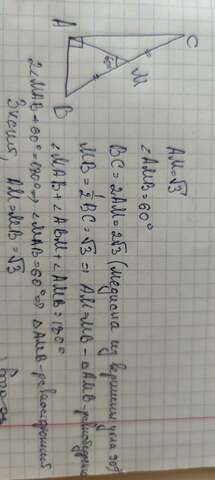 A
C
60°
M
B
AM=√3
∠AMB=60°
BC=2AM=2√3 (Медиана из вершины угла 90°
MB=½BC=√3 ⇒ AM=MB - △AMB-равнобедрен
∠MAB+∠ABM+∠AMB=180°
2∠MAB+60°=180° ⇒ ∠MAB=60° ⇒ △AMB-равносторонний
AM=MB=√3